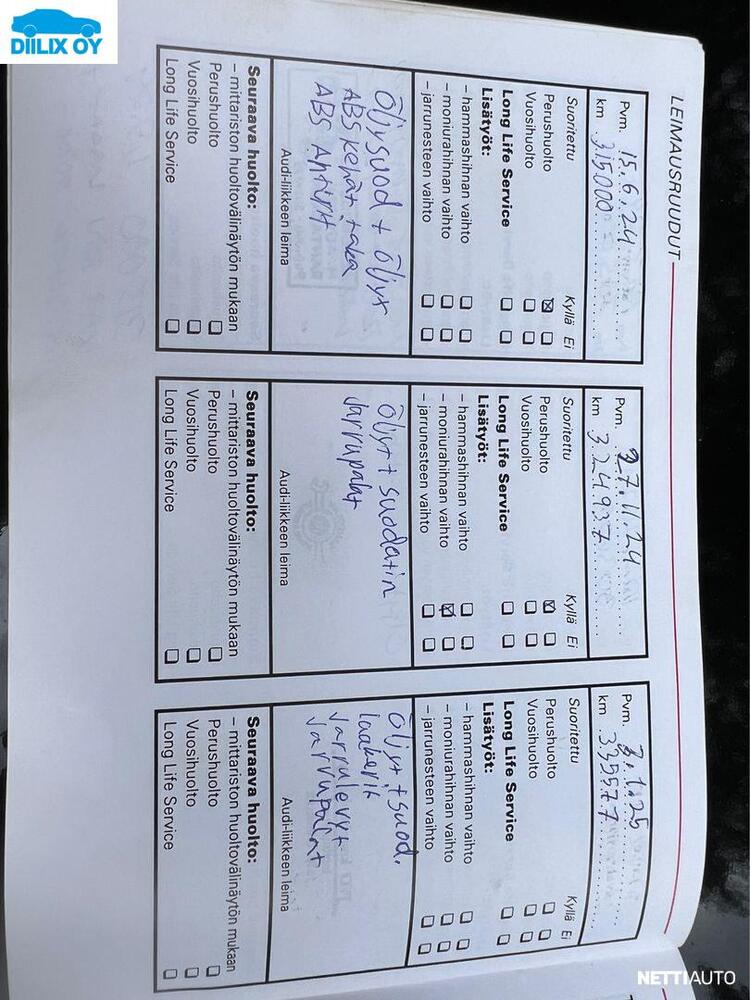 DIILIX OY
LEIMAUSRUUDUT
Pvm. 15.6.24
km 315.000
Suoritettu Kyllä Ei
Perushuolto
Vuosihuolto
Long Life Service
Lisätyöt:
– hammashihnan vaihto
– moniurahihnan vaihto
– jarrunesteen vaihto
Öljysuod + Öljyt
ABS kehät taka
ABS Anturit
Audi-liikkeen leima
Seuraava huolto:
– mittariston huoltovälinäytön mukaan
Perushuolto
Vuosihuolto
Long Life Service
Pvm. 27.11.24
km 324.937
Suoritettu Kyllä Ei
Perushuolto
Vuosihuolto
Long Life Service
Lisätyöt:
– hammashihnan vaihto
– moniurahihnan vaihto
– jarrunesteen vaihto
Öljyt + suodatin
Jarrupalat
Audi-liikkeen leima
Seuraava huolto:
– mittariston huoltovälinäytön mukaan
Perushuolto
Vuosihuolto
Long Life Service
Pvm. 3.1.25
km 335577
Suoritettu Kyllä Ei
Perushuolto
Vuosihuolto
Long Life Service
Lisätyöt:
– hammashihnan vaihto
– moniurahihnan vaihto
– jarrunesteen vaihto
Öljyt + suod.
laakerit
Jarrulevyt
Jarrupalat
Audi-liikkeen leima
Seuraava huolto:
– mittariston huoltovälinäytön mukaan
Perushuolto
Vuosihuolto
Long Life Service
NETTIAUTO